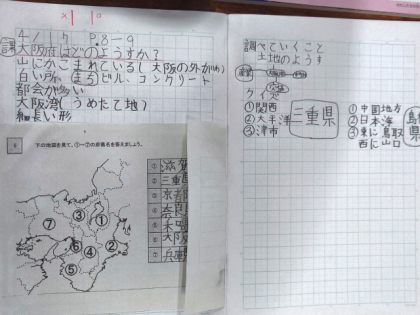 4/17 P.8-9
大阪府はどのようすか?
山にかこまれている(大阪の外がわ)
白い所 まち ビル、コンクリート
都会が多い
大阪湾(うめたて地)
細長い形
下の地図を見て、①~⑦の府県名を答えましょう。
① 滋賀
② 三重県
③ 京都
④ 奈良
⑥ 大阪
⑦ 兵庫
⑦ ③ ① ⑥ ④ ② ⑤
調べていくこと
土地のようす
交通
クイズ
①関西
②太平洋
③津市
三重県
①中国地方
②日本海
③東に鳥取
西に山口